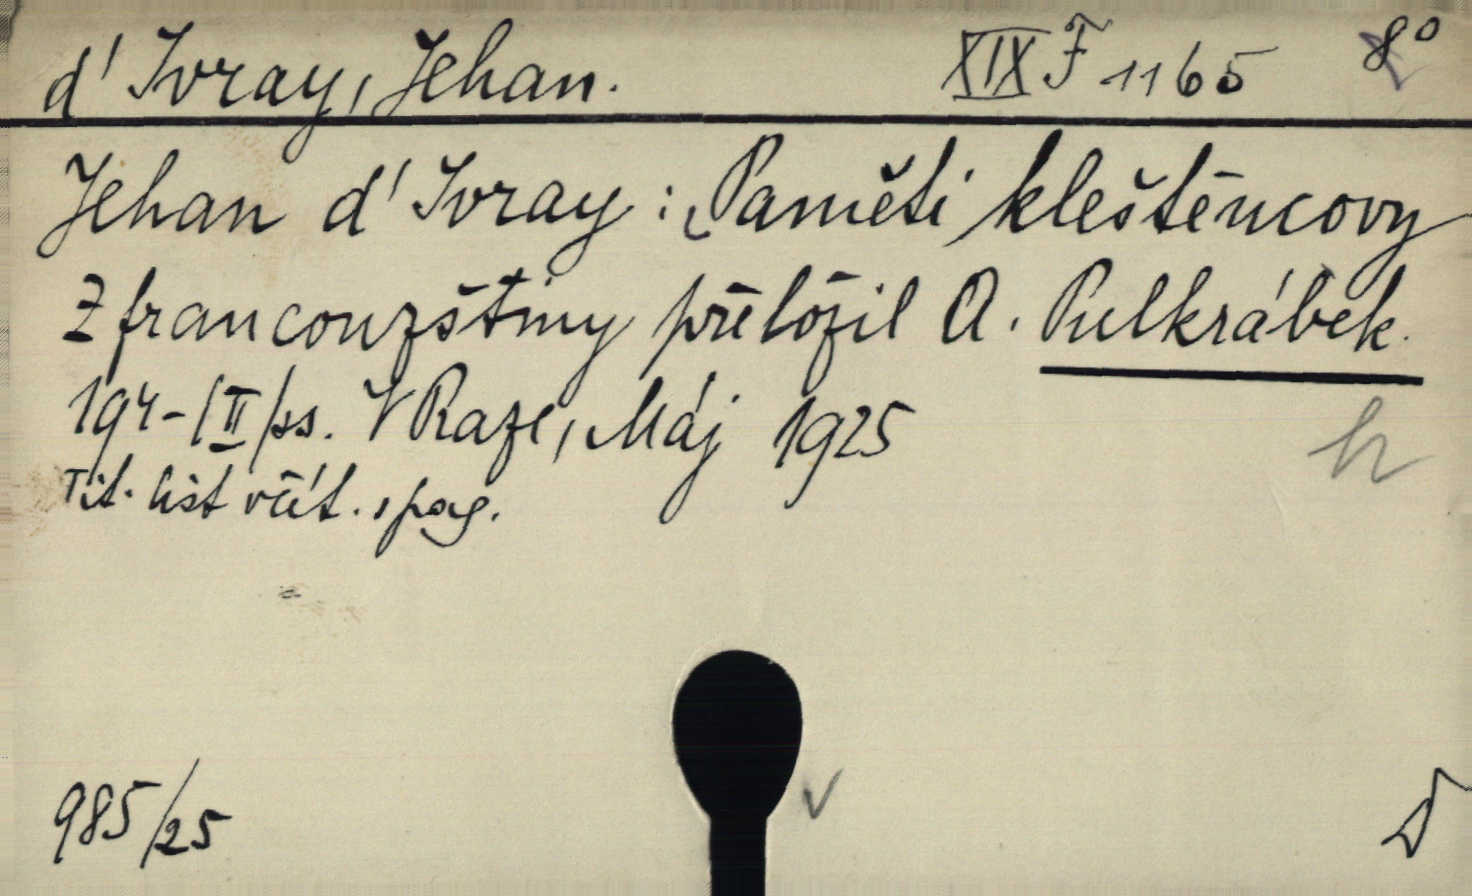 d'Ivray, Jehan. XIX F 1165 8°
Jehan d'Ivray: Paměti kleštěncovy
Z francouzštiny přeložil A. Pulkrábek.
194-/II/ss. V Praze, Máj 1925
Tit. list včít. pag.
985/25